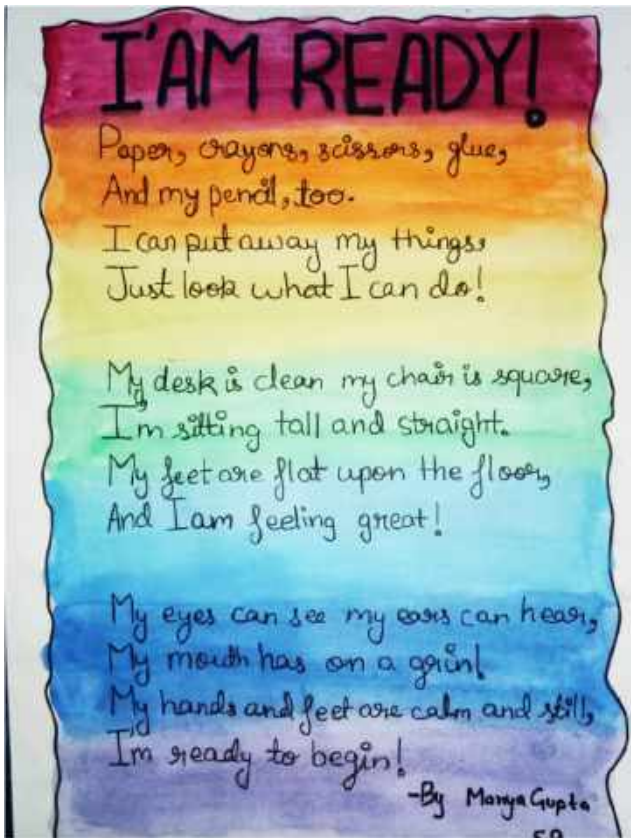 I'AM READY!
Paper, crayons, scissors, glue,
And my pencil, too.
I can put away my things,
Just look what I can do!
My desk is clean my chair is square,
I'm sitting tall and straight.
My feet are flat upon the floor,
And I am feeling great!
My eyes can see my ears can hear,
My mouth has on a grin!
My hands and feet are calm and still,
I'm ready to begin!
-By Manya Gupta